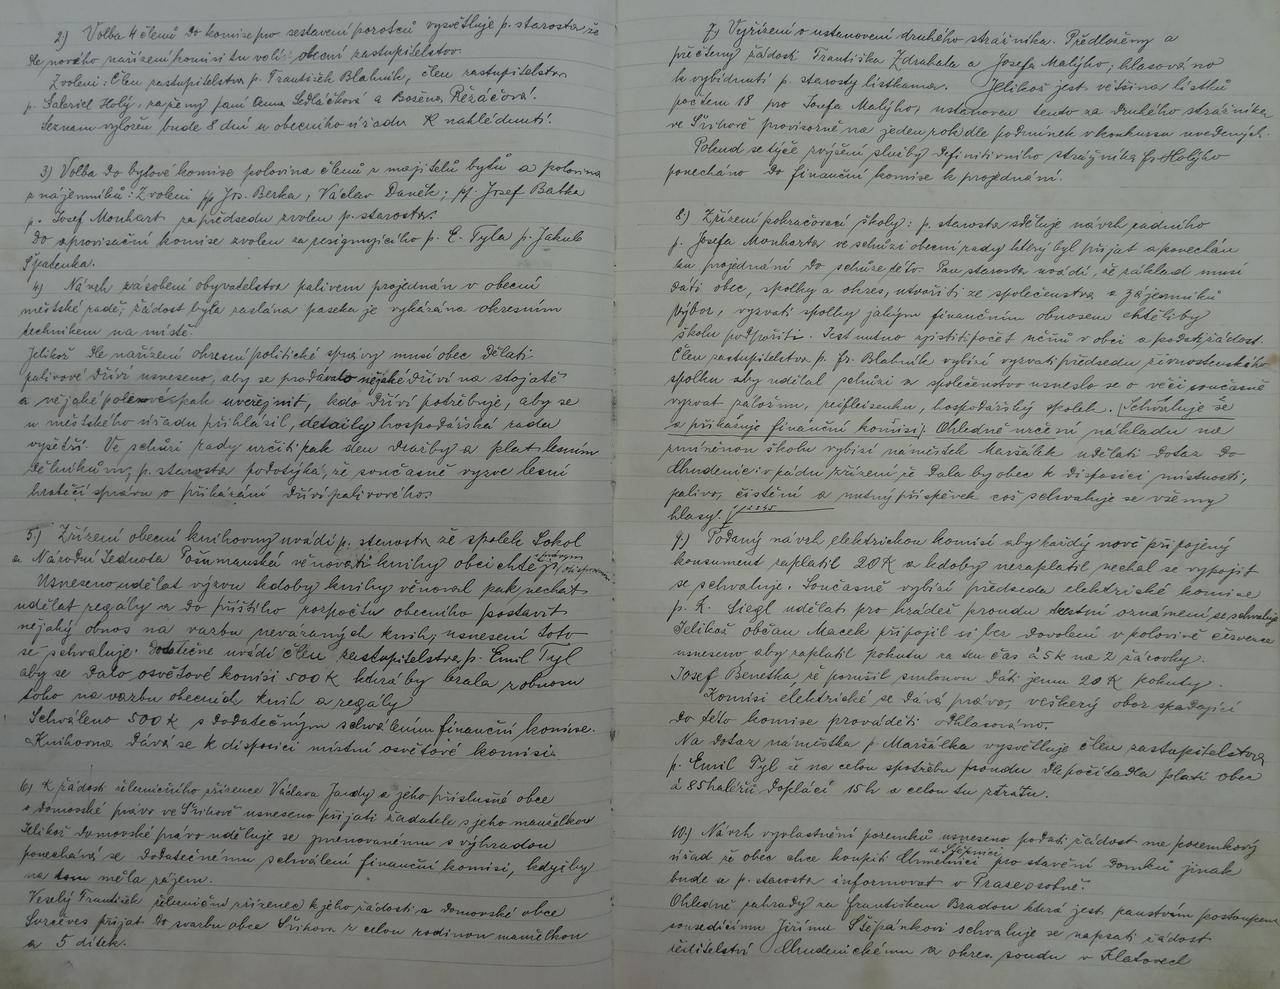 2.) Volba 4 členů do komise pro sestavení porotců vysvětluje p. starosta že
dle nového nařízení komisi tu volí obecní zastupitelstvo.
Zvoleni: Člen zastupitelstva p. František Blahník, člen zastupitelstva
p. Gabriel Holý; za ženy paní Anna Sedláčková a Božena Řezáčová.
Seznam vyložen bude 8 dní u obecního úřadu k nahlédnutí.
3) Volba do bytové komise polovina členů z majitelů bytů a polovina
z nájemníků: Zvoleni pp Jos. Berka, Václav Daněk; pp. Josef Batka
p. Josef Monhart za předsedu zvolen p. starosta.
Do aprovisační komise zvolen za resignujícího p. E. Tyla p. Jakub
Špatenka.
4) Návrh zásobení obyvatelstva palivem projednán v obecní
městské radě, žádost byla zaslána paseka je vykázána okresním
technikem na místě.
Jelikož dle nařízení okresní politické správy musí obec dělati
palivové dříví usneseno, aby se prodávalo nějaké dříví na stojatě
a nějaké pak uveřejnit, kdo dříví potřebuje, aby se
u městského úřadu přihlásil, detaily hospodářská rada
vyšetří. Ve schůzi rady určiti pak den dražby a plat lesním
dělníkům, p. starosta podotýká, že současně vyzve lesní
hraběcí správu o přikázání dříví palivového.
5.) Zřízení obecní knihovny uvádí p. starosta že spolek Sokol
a Národní Jednota Pošumavská věnovati knihy obci chtějí
Usneseno udělat výzvu kdoby knihy věnoval pak nechat
udělat regály a do příštího rozpočtu obecního postavit
nějaký obnos na vazbu nevázaných knih, usnesení toto
se schvaluje. Dodatečně uvádí člen zastupitelstva p. Emil Tyl
aby se dalo osvětové komisi 500 K která by brala z obnosu
toho na vazbu obecních knih a regály
Schváleno 500 K s dodatečným schválením finanční komise.
Knihovna dává se k disposici místní osvětové komisi.
6) K žádosti železničního zřízence Václava Jandy a jeho příslušné obce
o domovské právo ve Švihově usneseno přijati žadatele s jeho manželkou
Jelikož domovské právo uděluje se jmenovanému s výhradou
ponechává se dodatečnému schválení finanční komisi, kdyžby
na tom měla zájem.
Veselý František železniční zřízenec k jeho žádosti a domovské obce
přijat do svazku obce Švihova z celou rodinou manželkou
a 5 dítek.
7.) Vyřízení o ustanovení druhého strážníka. Předloženy a
přečteny žádosti Františka Zdrahala a Josefa Malýho; hlasováno
k vybídnutí p. starosty lístkama. Jelikož jest většina lístků
počtem 18 pro Josefa Malýho, ustanoven tento za druhého strážníka
ve Švihově provisorně na jeden rok dle podmínek v konkursu uvedených.
Pokud se týče zvýšení služby definitivního strážníka Fr. Holýho
ponecháno do finanční komise k projednání.
8.) Zřízení pokračovací školy: p. starosta sděluje návrh radního
p. Josefa Monharta ve schůzi obecní rady který byl přijat a ponechán
ku projednání do schůze této. Pan starosta uvádí, že základ musí
dáti obec, spolky a okres, utvořiti ze společenstva a zájemníků
výbor, vyzvati spolky jakým finančním obnosem chtěli by
školu podpořiti. Jest nutno zjistiti počet učňů v obci a podati žádost.
Člen zastupitelstva p. Fr. Blahník vybízí vyzvati předsedu živnostenského
spolku aby udělal schůzi a společenstvo usneslo se o věci současně
vyzvat záložnu, reifeisenku, hospodářský spolek. (Schvaluje se
a přikazuje finanční komisi). Ohledně určení nákladu na
zmíněnou školu vybízí náměstek Maršálek udělati dotaz do
Chudenic v pádu zřízení že dala by obec k disposici místnosti,
palivo, čistění a nutný příspěvek což schvaluje se všemy
hlasy.
9.) Podaný návrh elektrickou komisí aby každý nově připojený
konsument zaplatil 20 K a kdoby nezaplatil nechal se vypojit
se schvaluje. Současně vybízí předseda elektrické komise
p. K. Siegl udělati pro krádež proudu trestní oznámení se schvaluje
Jelikož občan Macek připojil si bez dovolení v polovině července
usneseno aby zaplatil pokutu za ten čas á 5 K na 2 žárovky.
Josef Benetka že porušil smlouvu dáti jemu 20 K pokuty.
Komisi elektrické se dává právo, veškerý obor spadající
do této komise prováděti odhlasováno.
Na dotaz náměstka p. Maršálka vysvětluje člen zastupitelstva
p. Emil Tyl že na celou spotřebu proudu dle počítadla platí obec
á 85 haléřů doplácí 15 h a celou tu ztrátu.
10.) Návrh vyvlastnění pozemků usneseno podati žádost na pozemkový
úřad že obec chce koupiti Chmelnici pro stavění domků jinak
bude se p. starosta informovat v Praze osobně.
Ohledně zahrady za Františkem Bradou která jest panstvím postoupena
sousedícímu Jiřímu Štěpánkovi schvaluje se napsati žádost
ředitelství Chudenickému a okres. soudu v Klatovech